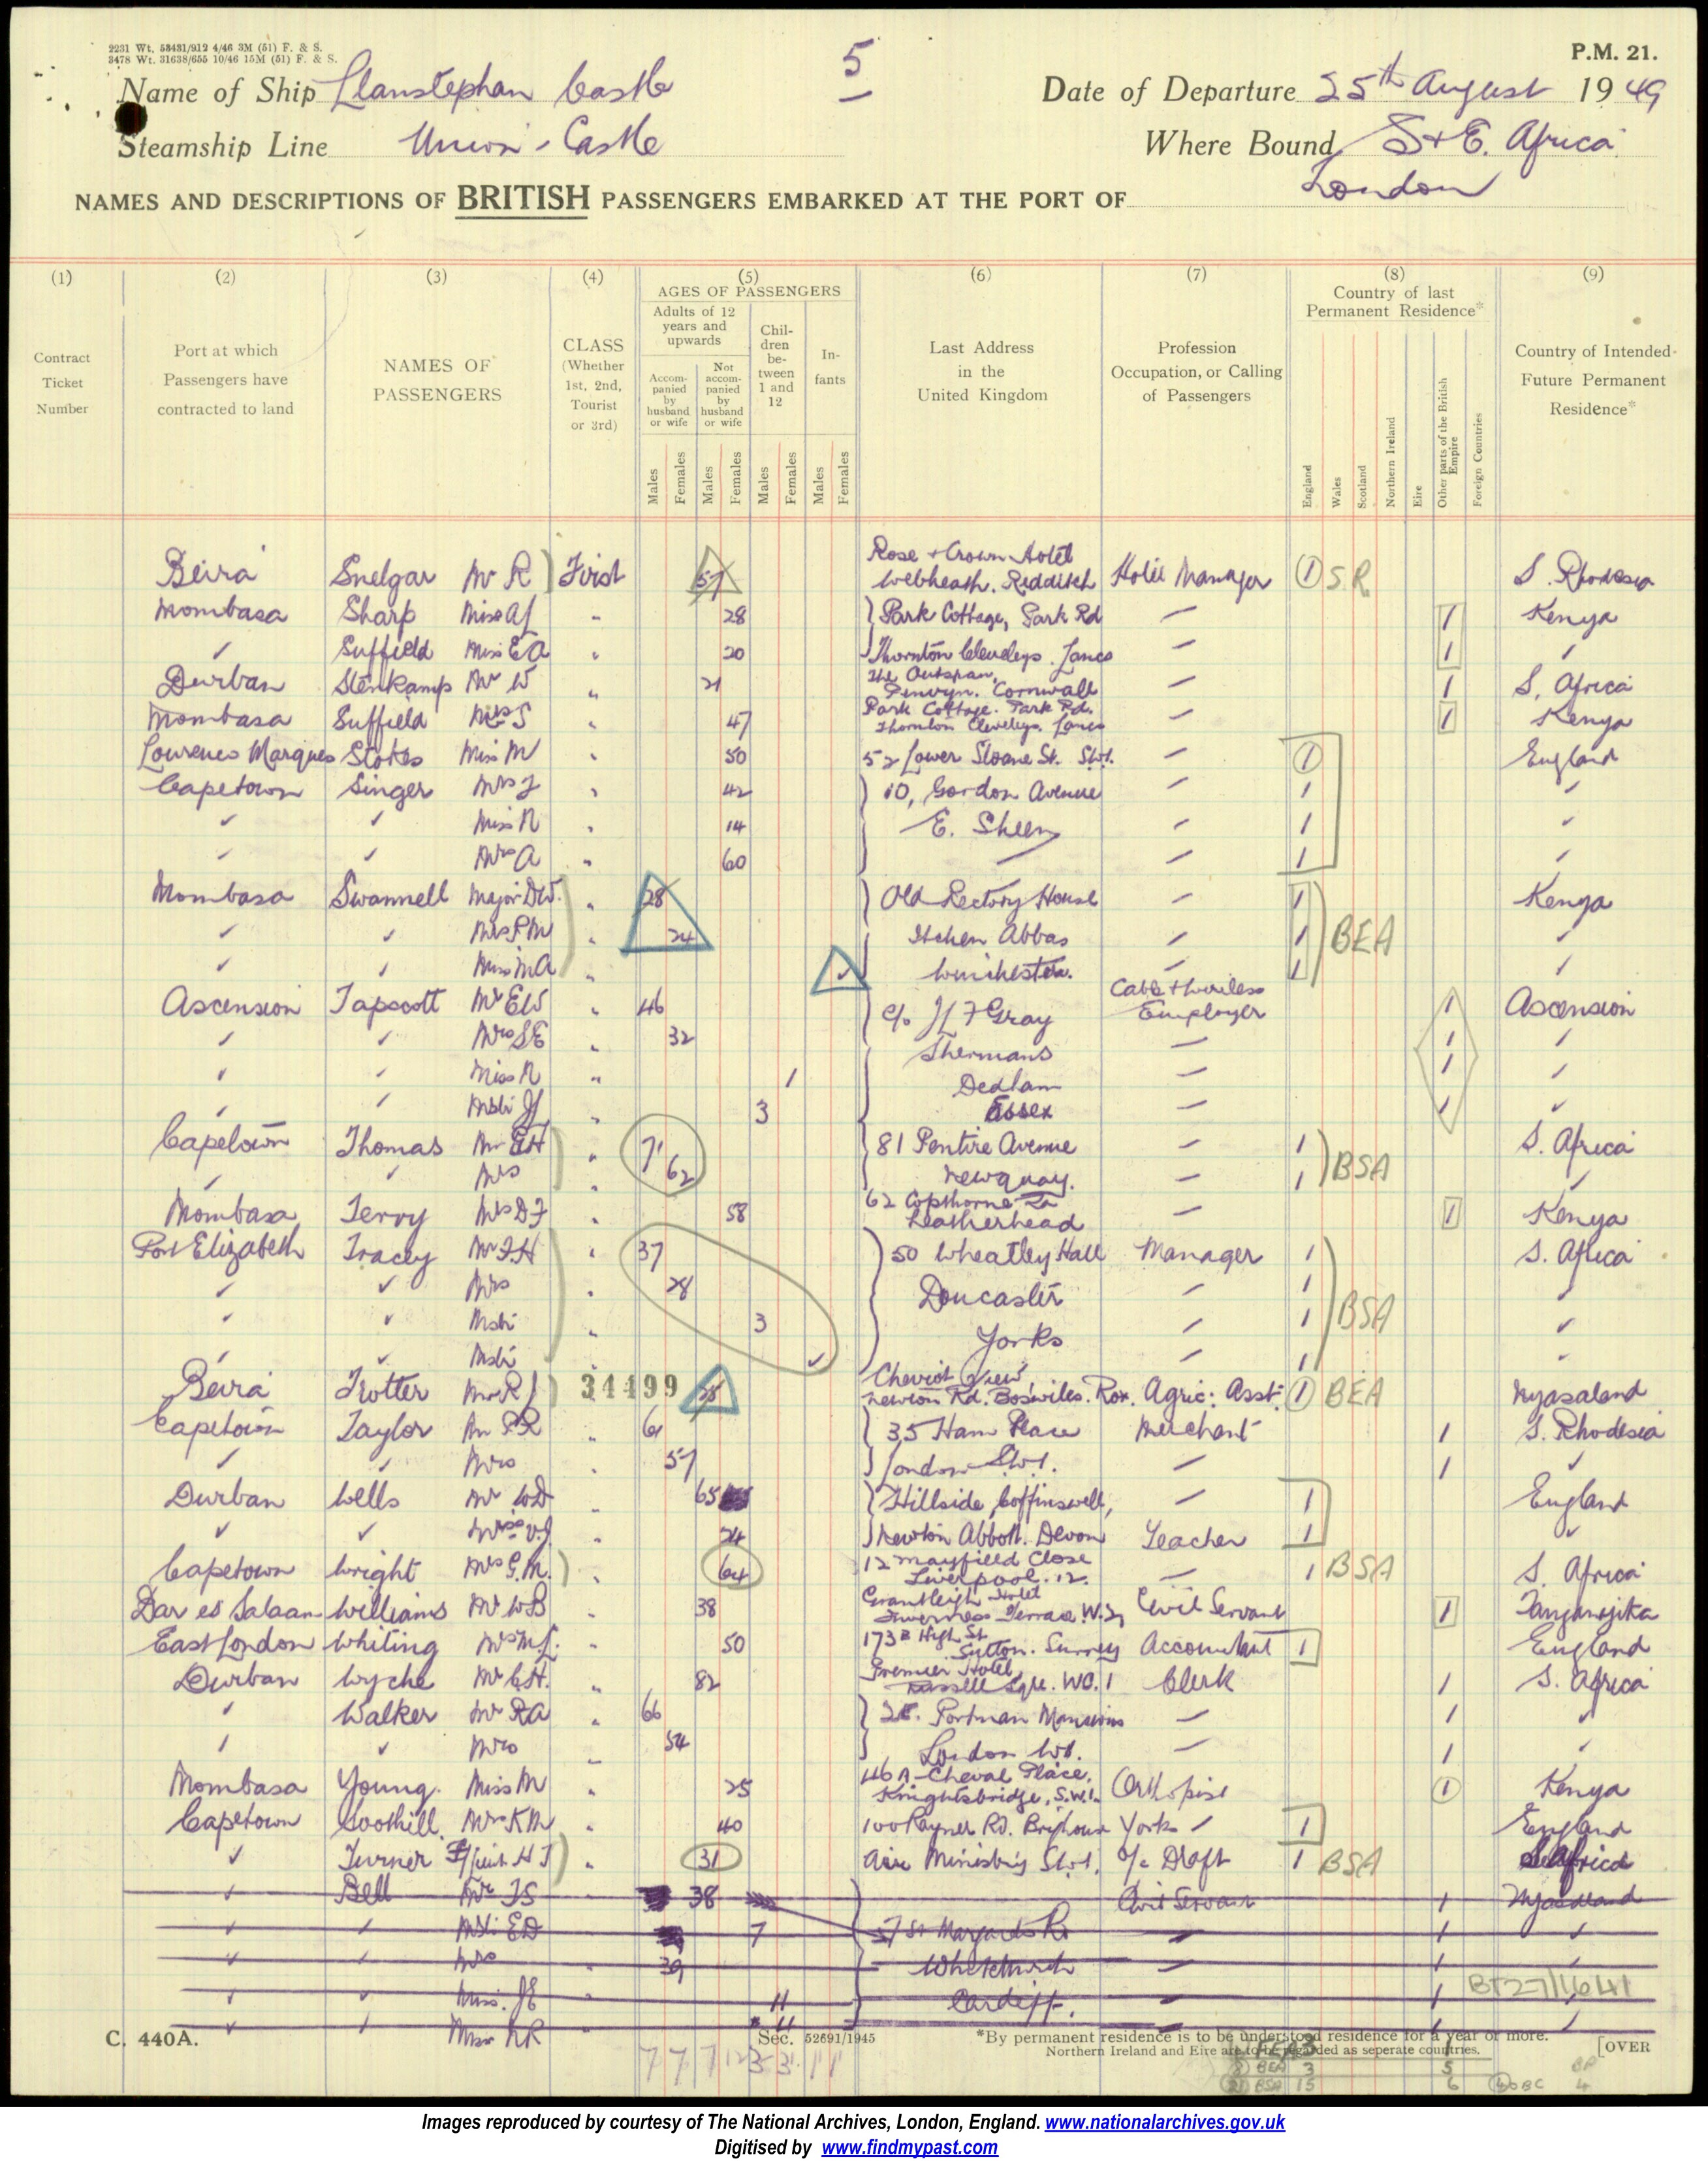 2231 Wt. 58431/912 4/46 3M (51) F. & S.
3478 Wt. 31638/655 10/46 15M (51) F. & S.
5
P.M. 21.
Name of Ship Llanstephan Castle
Date of Departure 25th August 1949
Steamship Line Union-Castle
Where Bound S + E. Africa
NAMES AND DESCRIPTIONS OF BRITISH PASSENGERS EMBARKED AT THE PORT OF London
(1) (2) (3) (4) (5) (6) (7) (8) (9)
Contract Ticket Number
Port at which Passengers have contracted to land
NAMES OF PASSENGERS
CLASS (Whether 1st, 2nd, Tourist or 3rd)
AGES OF PASSENGERS
Adults of 12 years and upwards
Accompanied by husband or wife
Not accompanied by husband or wife
Children between 1 and 12
Infants
Males Females Males Females Males Females Males Females
Last Address in the United Kingdom
Profession Occupation, or Calling of Passengers
Country of last Permanent Residence*
England Wales Scotland Northern Ireland Eire Other parts of the British Empire Foreign Countries
Country of Intended Future Permanent Residence*
Beira Snelgar Mr R First 57 Rose + Crown Hotel Webheath. Redditch Hotel Manager 1 S.R S. Rhodesia
Mombasa Sharp Miss 28 Park Cottage, Park Rd 1 Kenya
Suffield Miss E A 20 Thornton Cleveleys. Lancs 1
Durban Stenkamp Mr W 21 The Outspan, Penryn. Cornwall 1 S. Africa
Mombasa Suffield Mrs S 47 Park Cottage. Park Rd. Thornton Cleveleys. Lancs 1 Kenya
Lourenco Marques Stokes Miss M 50 52 Lower Sloane St. SW1. 1 England
Capetown Singer Mrs 42 10, Gordon Avenue 1
Miss N 14 E. Sheen 1
Mrs A 60 1
Mombasa Swannell Major DW. 28 Old Rectory House 1 Kenya
Mrs P M 24 Itchen Abbas 1 BEA
Miss M A Winchester. 1
Ascension Tapscott Mr EW 46 c/o Gray Cable + Wireless Employer 1 Ascension
Mrs S E 32 Shermans 1
Miss N 1 Dedham 1
Mstr 3 Essex 1
Capetown Thomas Mr 71 81 Pentire Avenue 1 BSA S. Africa
Mrs 62 Newquay. 1
Mombasa Terry Mrs D F 58 62 Copthorne Leatherhead 1 Kenya
Port Elizabeth Tracey Mr F H 37 50 Wheatley Hall Manager 1 S. Africa
Mrs 28 Doncaster 1
Mstr 3 Yorks 1 BSA
Mstr 1
Beira Trotter Mr 34499 Cheviot View, Newtown Rd. Boswiles. Rox. Agric: Asst: 1 BEA Nyasaland
Capetown Taylor Mr 61 35 Ham Place Merchant 1 S. Rhodesia
Mrs 57 London SW1. 1
Durban Wells Mr WD 65 Hillside, Coffinswell, 1 England
Miss 24 Newton Abbott. Devon Teacher 1
Capetown Wright Mrs G.M. 64 12 Mayfield Close Liverpool. 12. 1 BSA S. Africa
Dar es Salaam Williams Mr WB 38 Grantleigh Hotel Inverness Terrace W.2, Civil Servant 1 Tanganyika
East London Whiting 50 173B High St Sutton. Surrey Accountant 1 England
Durban Wyche Mr C H. 82 Premier Hotel, Russell Sqre. WC.1 Clerk 1 S. Africa
Walker Mr RA 66 Portman Mansions 1
Mrs 54 London W1. 1
Mombasa Young. Miss M 25 46A Cheval Place, Knightsbridge, S.W.1. Orthopist 1 Kenya
Capetown Soothill. Mrs K M 40 100 Rayner Rd. Brighouse Yorks 1 England
Turner H J 31 Air Ministry SW1. o/c Draft 1 BSA S Africa
Bell Mr 38 Civil Servant 1 Nyasaland
Mstr ED 7 57 St Margarets Rd 1
Mrs 39 Whitchurch 1
Miss. 11 Cardiff. 1
Miss 11 1
BT27/1641
C. 440A.
Sec. 52691/1945
*By permanent residence is to be understood residence for a year or more.
Northern Ireland and Eire are to be regarded as seperate countries.
[OVER
BEA 3 5
BSA 15 6
Images reproduced by courtesy of The National Archives, London, England. www.nationalarchives.gov.uk
Digitised by www.findmypast.com